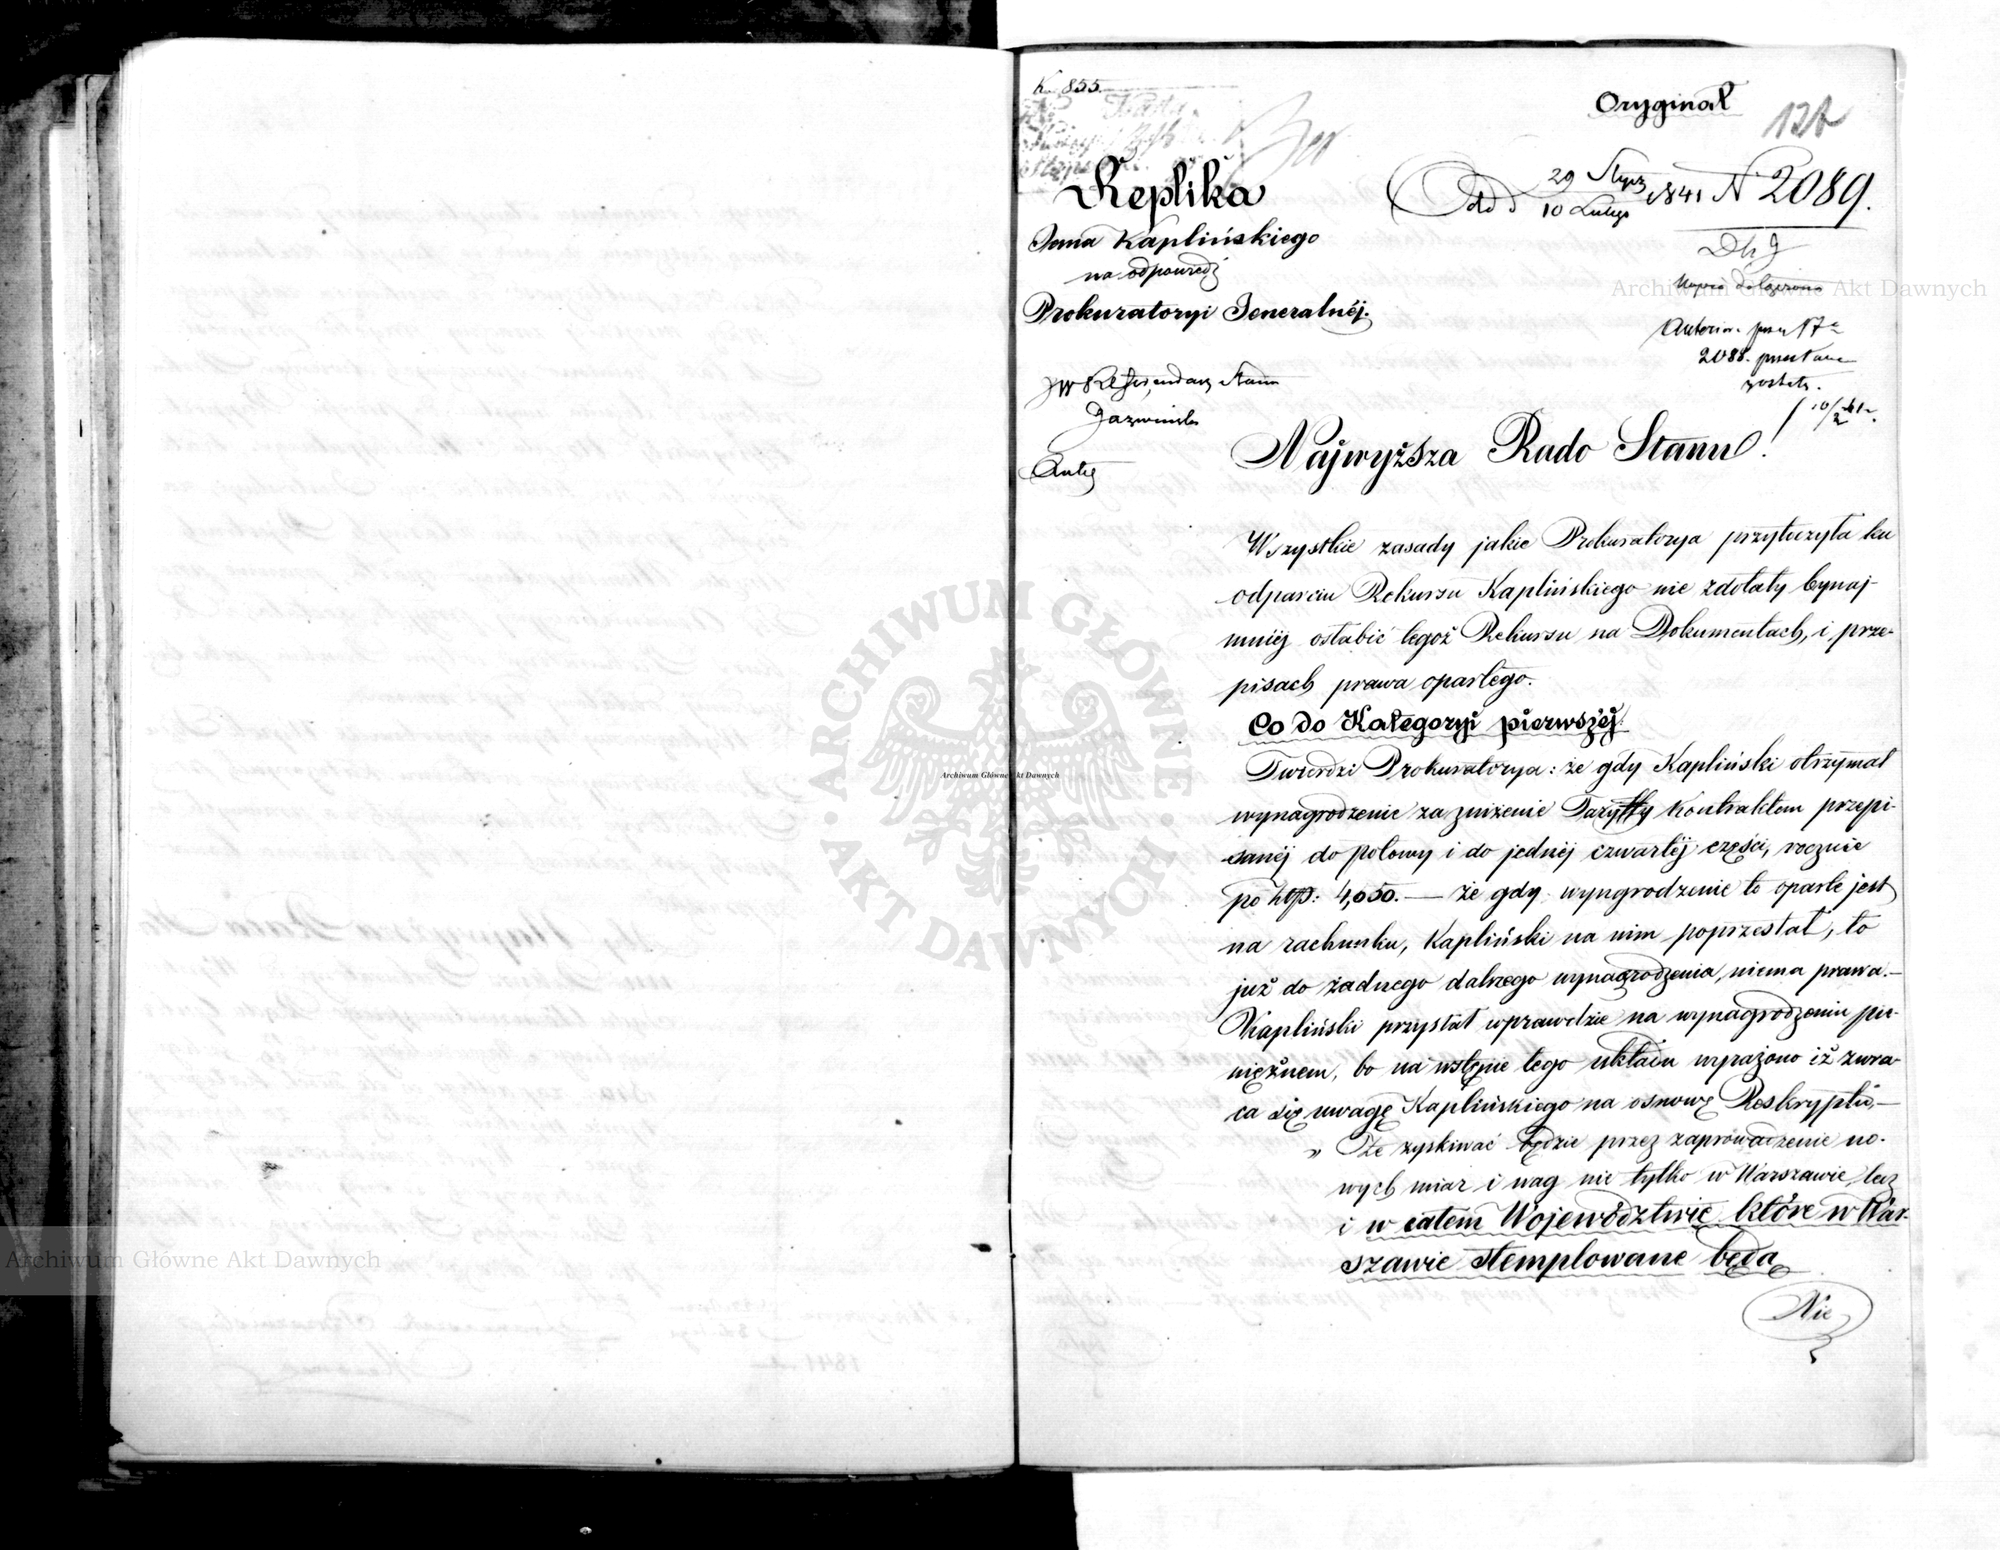 K. 855.
Oryginał
127
Replika
Jana Kaplińskiego
na odpowiedź
Prokuratoryi Jeneralnéj.
Odd d 29 Stycz 1841 N 2089.
10 Lutego
2088. 
zostały.
JW Referendarz Stanu
Najwyższa Rado Stanu!
Wszystkie zasady jakie Prokuratorya przytoczyła ku
odparciu Rekursu Kaplińskiego nie zdołały bynaj-
mniéj osłabić tegoż Rekursu na Dokumentach, i prze-
pisach prawa opartego.
Co do Kategoryi pierwszéj.
Twierdzi Prokuratorya: że gdy Kapliński otrzymał
wynagrodzenie za zniżenie Taryffy Kontraktem przepi-
sanéj do połowy i do jednéj czwartéj części, rocznie
po złp: 4,050. — że gdy wyngrodzenie to oparte jest
na rachunku, Kapliński na nim poprzestał, to
już do żadnego dalszego wynagrodzenia, niema prawa.—
Kapliński przystał wprawdzie na wynagrodzeniu pie-
niężnem, bo na wstępie tego układu wyrażono iż zwra-
ca się uwagę Kaplińskiego na osnowę Reskryptu,—
„ Że zyskiwać będzie przez zaprowadzenie no-
wych miar i wag nie tylko w Warszawie, lecz
i w całem Województwie które w War-
szawie stemplowane będą
Nie
Archiwum Główne Akt Dawnych
Archiwum Główne Akt Dawnych
Archiwum Główne Akt Dawnych
ARCHIWUM GŁÓWNE
AKT DAWNYCH